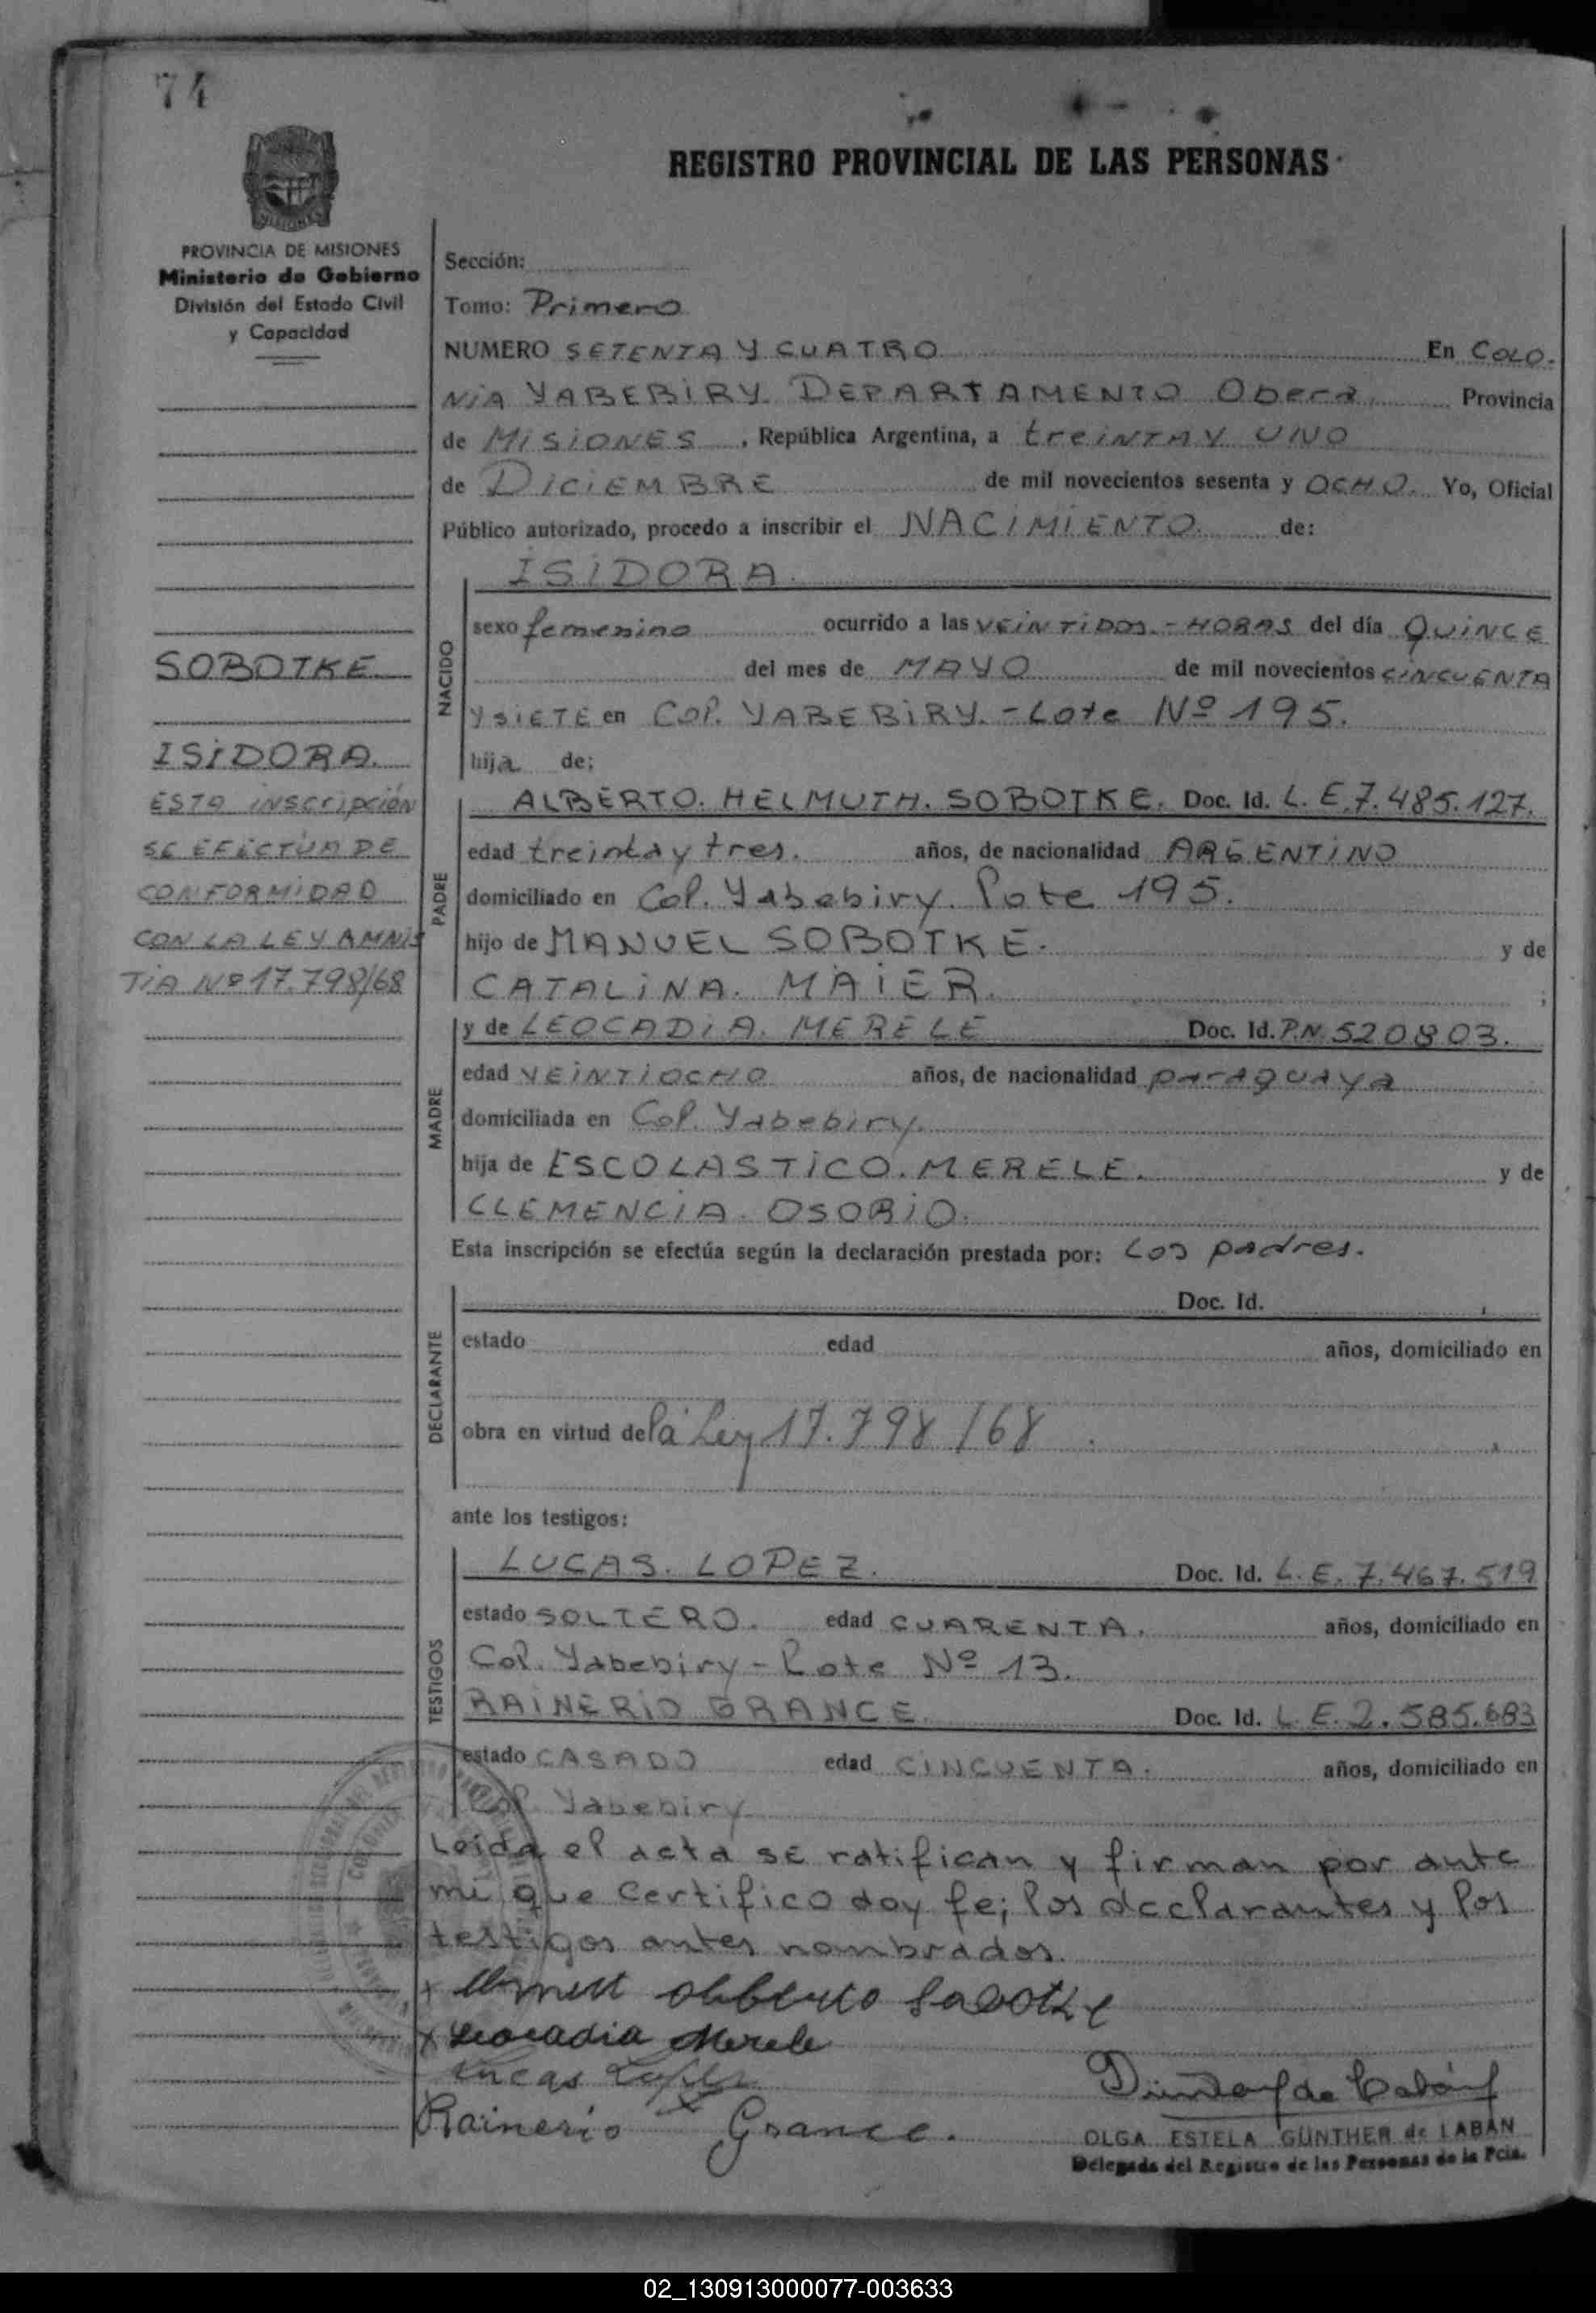 74
REGISTRO PROVINCIAL DE LAS PERSONAS
PROVINCIA DE MISIONES
Ministerio de Gobierno
División del Estado Civil
y Capacidad
SOBOTKE
ISIDORA.
ESTA inscripción
SE EFECTUA DE
CONFORMIDAD
CON LA LEY AMNIS
TIA Nº 17.798/68
Sección:
Tomo: Primero
NUMERO SETENTA Y CUATRO En COLO-
NIA YABEBIRY. DEPARTAMENTO Oberá, Provincia
de MISIONES, República Argentina, a treinta y UNO
de DICIEMBRE de mil novecientos sesenta y OCHO. Yo, Oficial
Público autorizado, procedo a inscribir el NACIMIENTO. de:
NACIDO
ISIDORA.
sexo femenino ocurrido a las VEINTIDOS.- HORAS del día QUINCE
del mes de MAYO de mil novecientos CINCUENTA
Y SIETE en Col. YABEBIRY.- Lote Nº 195.
hija de;
PADRE
ALBERTO. HELMUTH. SOBOTKE. Doc. Id. L. E. 7.485.127.
edad treinta y tres. años, de nacionalidad ARGENTINO
domiciliado en Col. Yabebiry. Lote 195.
hijo de MANUEL SOBOTKE. y de
CATALINA. MAIER. ;
MADRE
y de LEOCADIA. MERELE Doc. Id. P.N. 520803.
edad VEINTIOCHO años, de nacionalidad paraguaya
domiciliada en Col. Yabebiry.
hija de ESCOLASTICO. MERELE. y de
CLEMENCIA. OSORIO.
Esta inscripción se efectúa según la declaración prestada por: Los padres.
DECLARANTE
Doc. Id. ,
estado edad años, domiciliado en
obra en virtud de la Ley 17.798/68
ante los testigos:
TESTIGOS
LUCAS. LOPEZ. Doc. Id. L. E. 7.467.519
estado SOLTERO. edad CUARENTA. años, domiciliado en
Col. Yabebiry - Lote Nº 13.
RAINERIO GRANCE. Doc. Id. L. E. 2.585.683
estado CASADO edad CINCUENTA. años, domiciliado en
Col Yabebiry
Leida el acta se ratifican y firman por ante
mi que certifico doy fe; los declarantes y los
testigos antes nombrados.
x Alberto Sobotke
x Leocadia Merele
Lucas
Rainerio Grance.
OLGA ESTELA GÜNTHER de LABÁN
Delegada del Registro de las Personas de la Pcia.
02_130913000077-003633